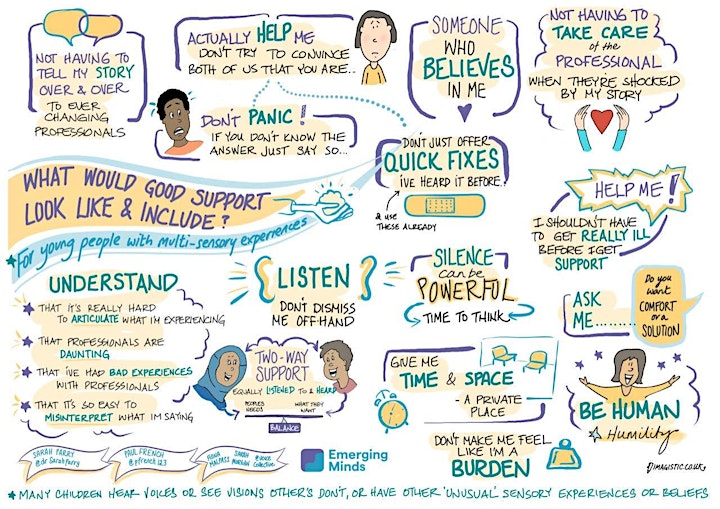 NOT HAVING TO
TELL MY STORY
OVER & OVER
TO EVER
CHANGING
PROFESSIONALS
ACTUALLY HELP ME
DON'T TRY TO CONVINCE
BOTH OF US THAT YOU ARE...
DON'T PANIC!
IF YOU DON'T KNOW THE
ANSWER JUST SAY SO...
SOMEONE
WHO
BELIEVES
IN ME
NOT HAVING TO
TAKE CARE
of the
PROFESSIONAL
WHEN THEY'RE SHOCKED
BY MY STORY
DON'T JUST OFFER
QUICK FIXES
I'VE HEARD IT BEFORE!
& USE
THESE ALREADY
WHAT WOULD GOOD SUPPORT
LOOK LIKE & INCLUDE?
*For young people with multi-sensory experiences
HELP ME!
I SHOULDN'T HAVE
TO GET REALLY ILL
BEFORE I GET
SUPPORT
UNDERSTAND
THAT IT'S REALLY HARD
TO ARTICULATE WHAT I'M EXPERIENCING
THAT PROFESSIONALS ARE
DAUNTING
THAT I'VE HAD BAD EXPERIENCES
WITH PROFESSIONALS
THAT IT'S SO EASY TO
MISINTERPRET WHAT I'M SAYING
LISTEN
DON'T DISMISS
ME OFF-HAND
SILENCE
can be
POWERFUL
TIME TO THINK
ASK
ME........
Do you
want
COMFORT
or a
SOLUTION
TWO-WAY
SUPPORT
EQUALLY LISTENED TO & HEARD
PEOPLES
NEEDS
WHAT THEY
WANT
BALANCE
GIVE ME
TIME & SPACE
- A PRIVATE
PLACE
BE HUMAN
Humility
DON'T MAKE ME FEEL
LIKE I'M A
BURDEN
SARAH PARRY
@dr Sarahparry
PAUL FRENCH
@pfrench123
FIONA
MALPASS
SARAH
@voice
Collective
Emerging
Minds
IMAGISTIC.CO.UK
* MANY CHILDREN HEAR VOICES OR SEE VISIONS OTHER'S DON'T, OR HAVE OTHER 'UNUSUAL' SENSORY EXPERIENCES OR BELIEFS